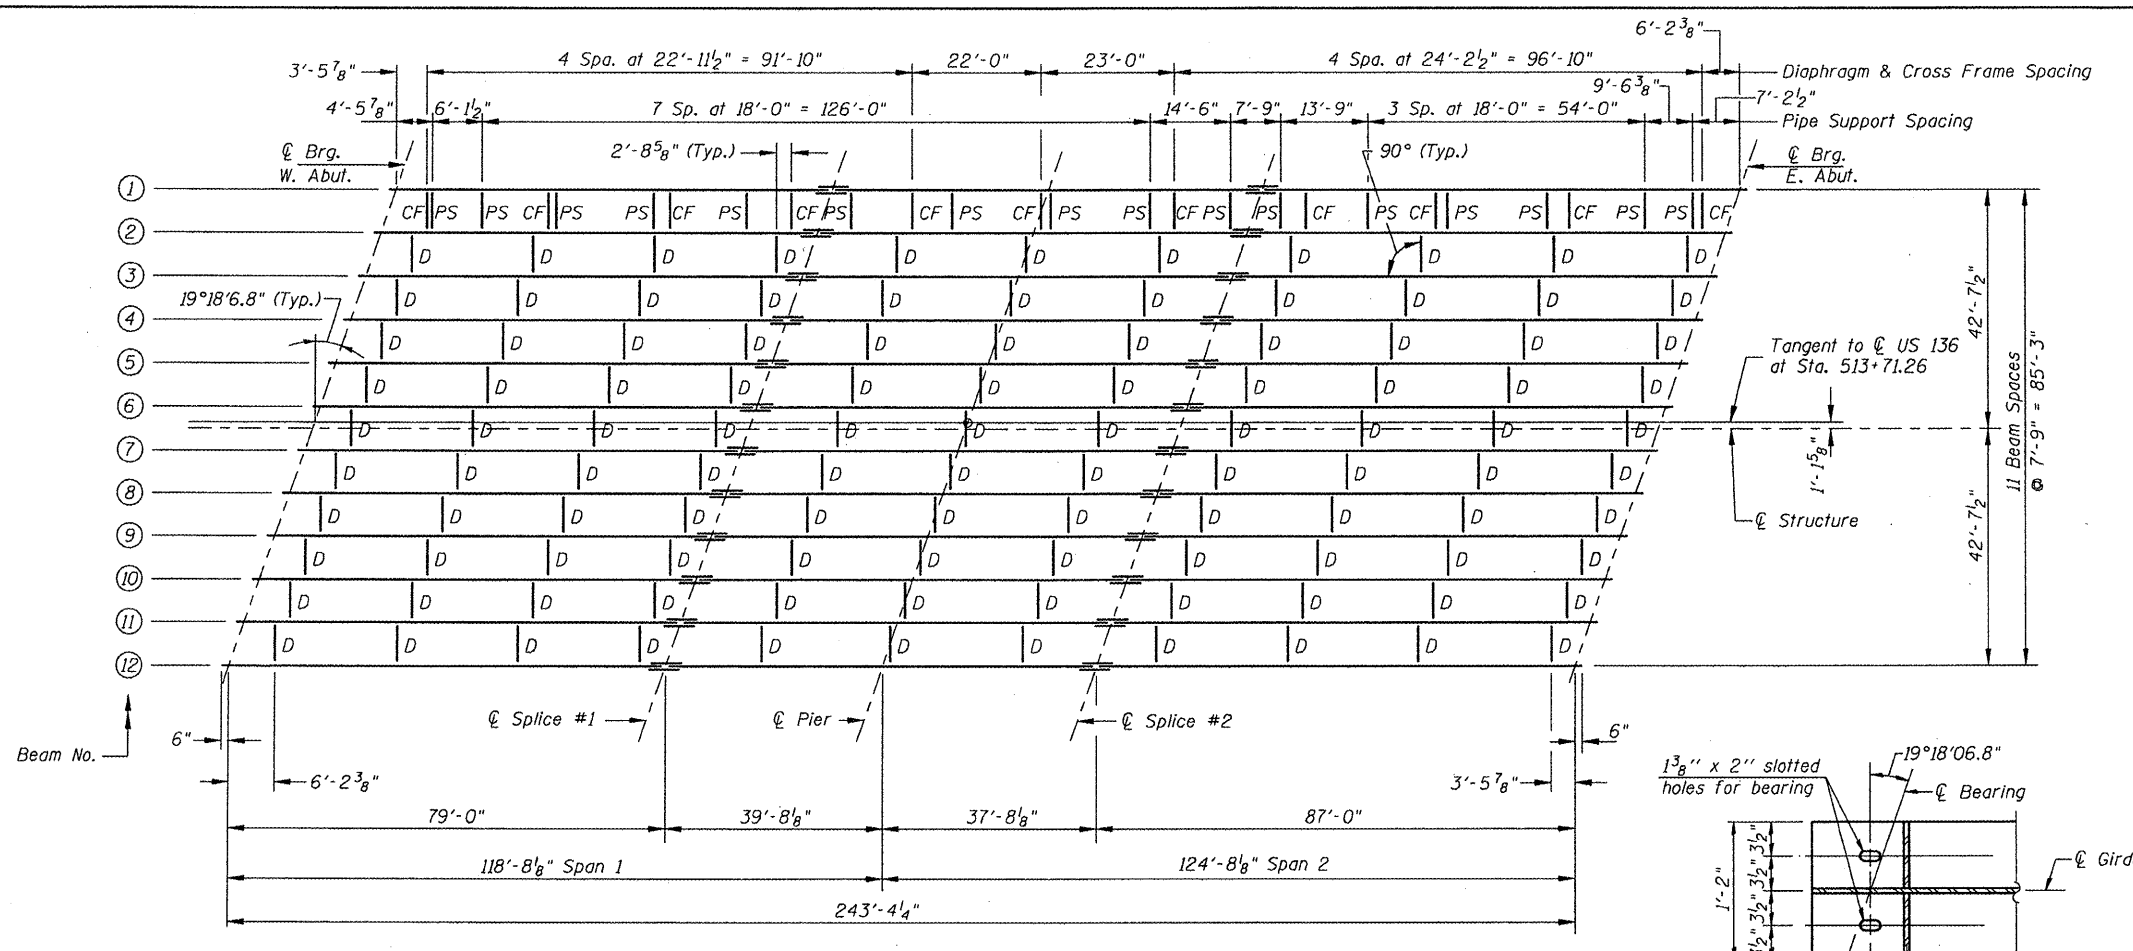 6'-2 3/8"
4 Spa. at 22'-11 1/2" = 91'-10"
22'-0"
23'-0"
4 Spa. at 24'-2 1/2" = 96'-10"
3'-5 7/8"
Diaphragm & Cross Frame Spacing
9'-6 3/8"
7'-2 1/2"
4'-5 7/8"
6'-1 1/2"
7 Sp. at 18'-0" = 126'-0"
14'-6"
7'-9"
13'-9"
3 Sp. at 18'-0" = 54'-0"
Pipe Support Spacing
2'-8 5/8" (Typ.)
90° (Typ.)
℄ Brg.
W. Abut.
℄ Brg.
E. Abut.
1
CF PS PS CF PS PS CF PS CF PS CF PS CF PS PS CF PS PS CF PS CF PS PS CF PS PS CF
2
D D D D D D D D D D D
3
D D D D D D D D D D D
19°18'6.8" (Typ.)
4
D D D D D D D D D D D
5
D D D D D D D D D D D
6
D D D D D D D D D D D
7
D D D D D D D D D D D
8
D D D D D D D D D D D
9
D D D D D D D D D D D
10
D D D D D D D D D D D
11
D D D D D D D D D D D
12
42'-7 1/2"
42'-7 1/2"
11 Beam Spaces
@ 7'-9" = 85'-3"
Tangent to ℄ US 136
at Sta. 513+71.26
1'-1 5/8"
℄ Structure
℄ Splice #1
℄ Pier
℄ Splice #2
Beam No.
6"
6'-2 3/8"
3'-5 7/8"
6"
79'-0"
39'-8 1/8"
37'-8 1/8"
87'-0"
118'-8 1/8" Span 1
124'-8 1/8" Span 2
243'-4 1/4"
1 3/8" x 2" slotted
holes for bearing
19°18'06.8"
℄ Bearing
℄ Gird
1'-2"
3 1/2"
3 1/2"
3 1/2"